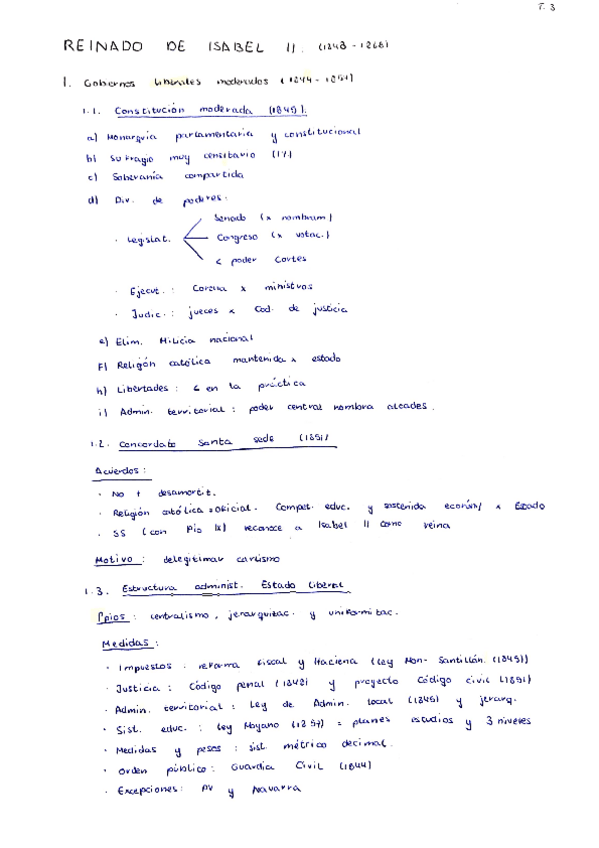 T. 3
REINADO DE ISABEL II. (1843 - 1868)
1. Gobiernos liberales moderados (1844 - 1854)
1.1. Constitución moderada (1845).
a) Monarquía parlamentaria y constitucional
b) Sufragio muy censitario (1%)
c) Soberanía compartida
d) Div. de poderes:
· Legislat.
Senado (x nombram)
Congreso (x votac.)
< poder Cortes
· Ejecut.: Corona x ministros
· Judic.: jueces x Cod. de justicia
e) Elim. Milicia nacional
F) Religión católica mantenida x estado
h) Libertades: < en la práctica
i) Admin. territorial: poder central nombra alcades.
1.2. Concordato Santa sede (1851)
Acuerdos:
· No + desamortit.
· Religión católica = oficial. Compet. educ. y sostenida económ/ x Estado
· SS (con Pio IX) reconoce a Isabel II como reina
Motivo: delegitimar carlismo
1.3. Estructura administ. Estado liberal
Ppios: centralismo, jerarquizac. y uniformizac.
Medidas:
· Impuestos: reforma fiscal y Haciena (Ley Mon- Santillán. (1845))
· Justicia: Código penal (1848) y proyecto Código civil (1851)
· Admin. territorial: Ley de Admin. local (1845) y jerarq.
· Sist. educ.: Ley Moyano (1857) = planes estudios y 3 niveles
· Medidas y pesos: sist. métrico decimal.
· Orden público: Guardia Civil (1844)
· Excepciones: PV y Navarra